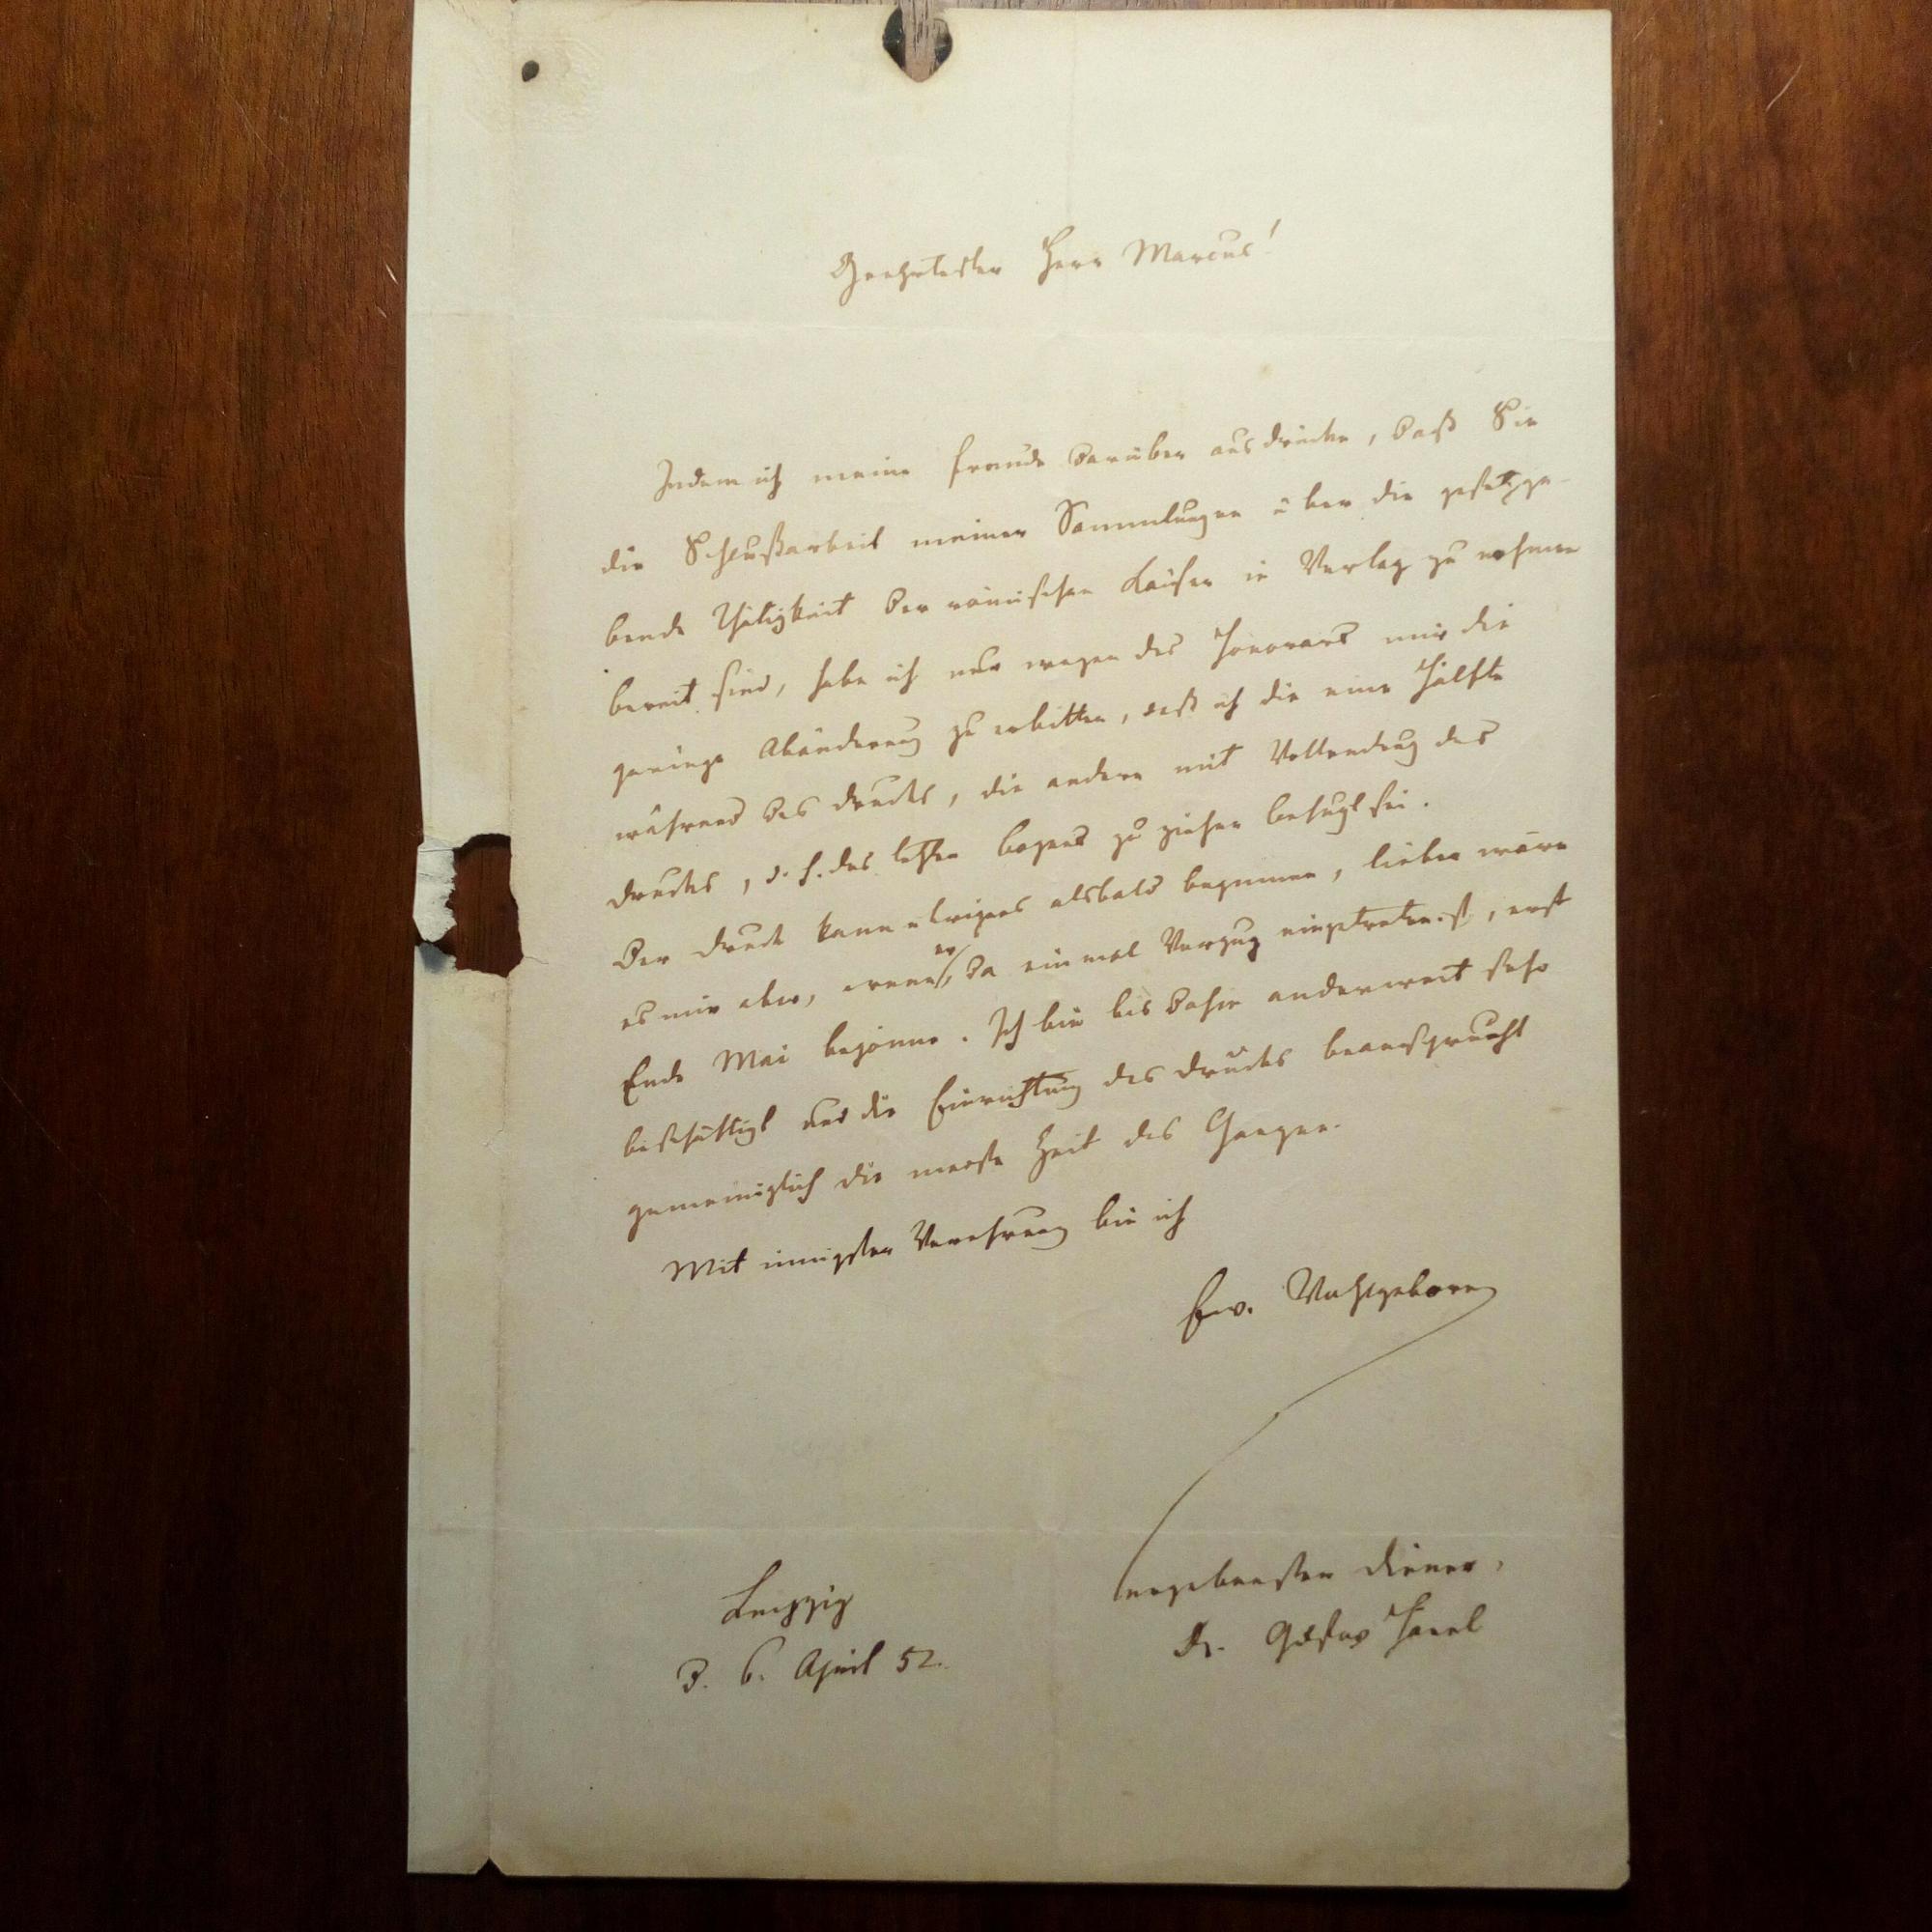 Geehrtester Herr Marcus!
Indem ich meine Freude darüber ausdrücke, daß Sie
die Schlußarbeit meiner Sammlungen über die gesetzge-
bende Thätigkeit der römischen Kaiser in Verlag zu nehmen
bereit sind, habe ich nur wegen des Honorars mir die
geringe Abänderung zu erbitten, daß ich die eine Hälfte
während des Drucks, die andere mit Vollendung des
Drucks, d. h. des letzten Bogens zu ziehen befugt sei.
Der Druck kann übrigens alsbald beginnen, lieber wäre
es mir aber, wenn er, da einmal Verzug eingetreten ist, erst
Ende Mai begönne. Ich bin bis dahin anderweit sehr
beschäftigt und die Einrichtung des Drucks beansprucht
gemeiniglich die meiste Zeit des Ganzen.
Mit innigster Verehrung bin ich
Ew. Wohlgeboren
ergebenster Diener,
Dr. Gustav Hänel
Leipzig
d. 6. April 52.